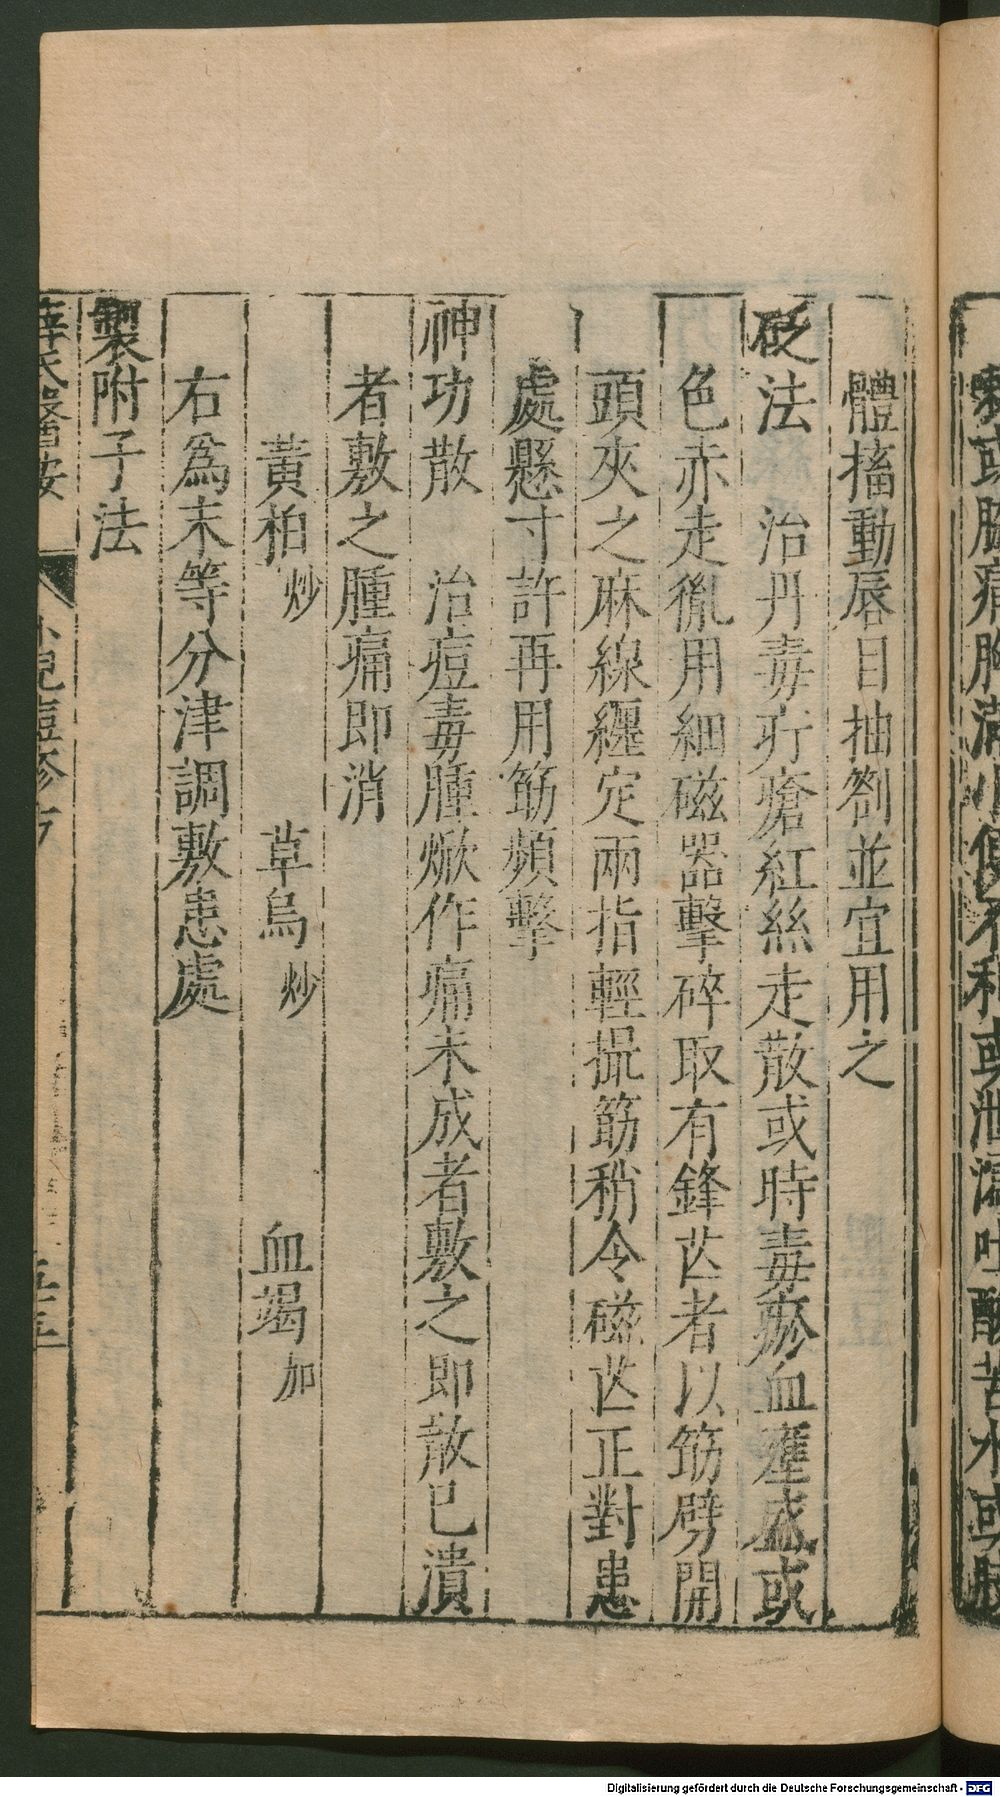 體搐動唇目抽劄並宜用之
砭法　治丹毒疔瘡紅絲走散或時毒瘀血壅盛或
色赤走㣧用細磁器擊碎取有鋒芒者以筯劈開
頭夾之麻線纏定兩指輕撮筯稍令磁芒正對患
處懸寸許再用筯頻擊
神功散　治痘毒腫焮作痛未成者敷之即散已潰
者敷之腫痛即消
黃柏炒　草烏炒　血竭加
右爲末等分津調敷患處
製附子法
薛氏醫按　小兒痘疹方　五十五
Digitalisierung gefördert durch die Deutsche Forschungsgemeinschaft - DFG